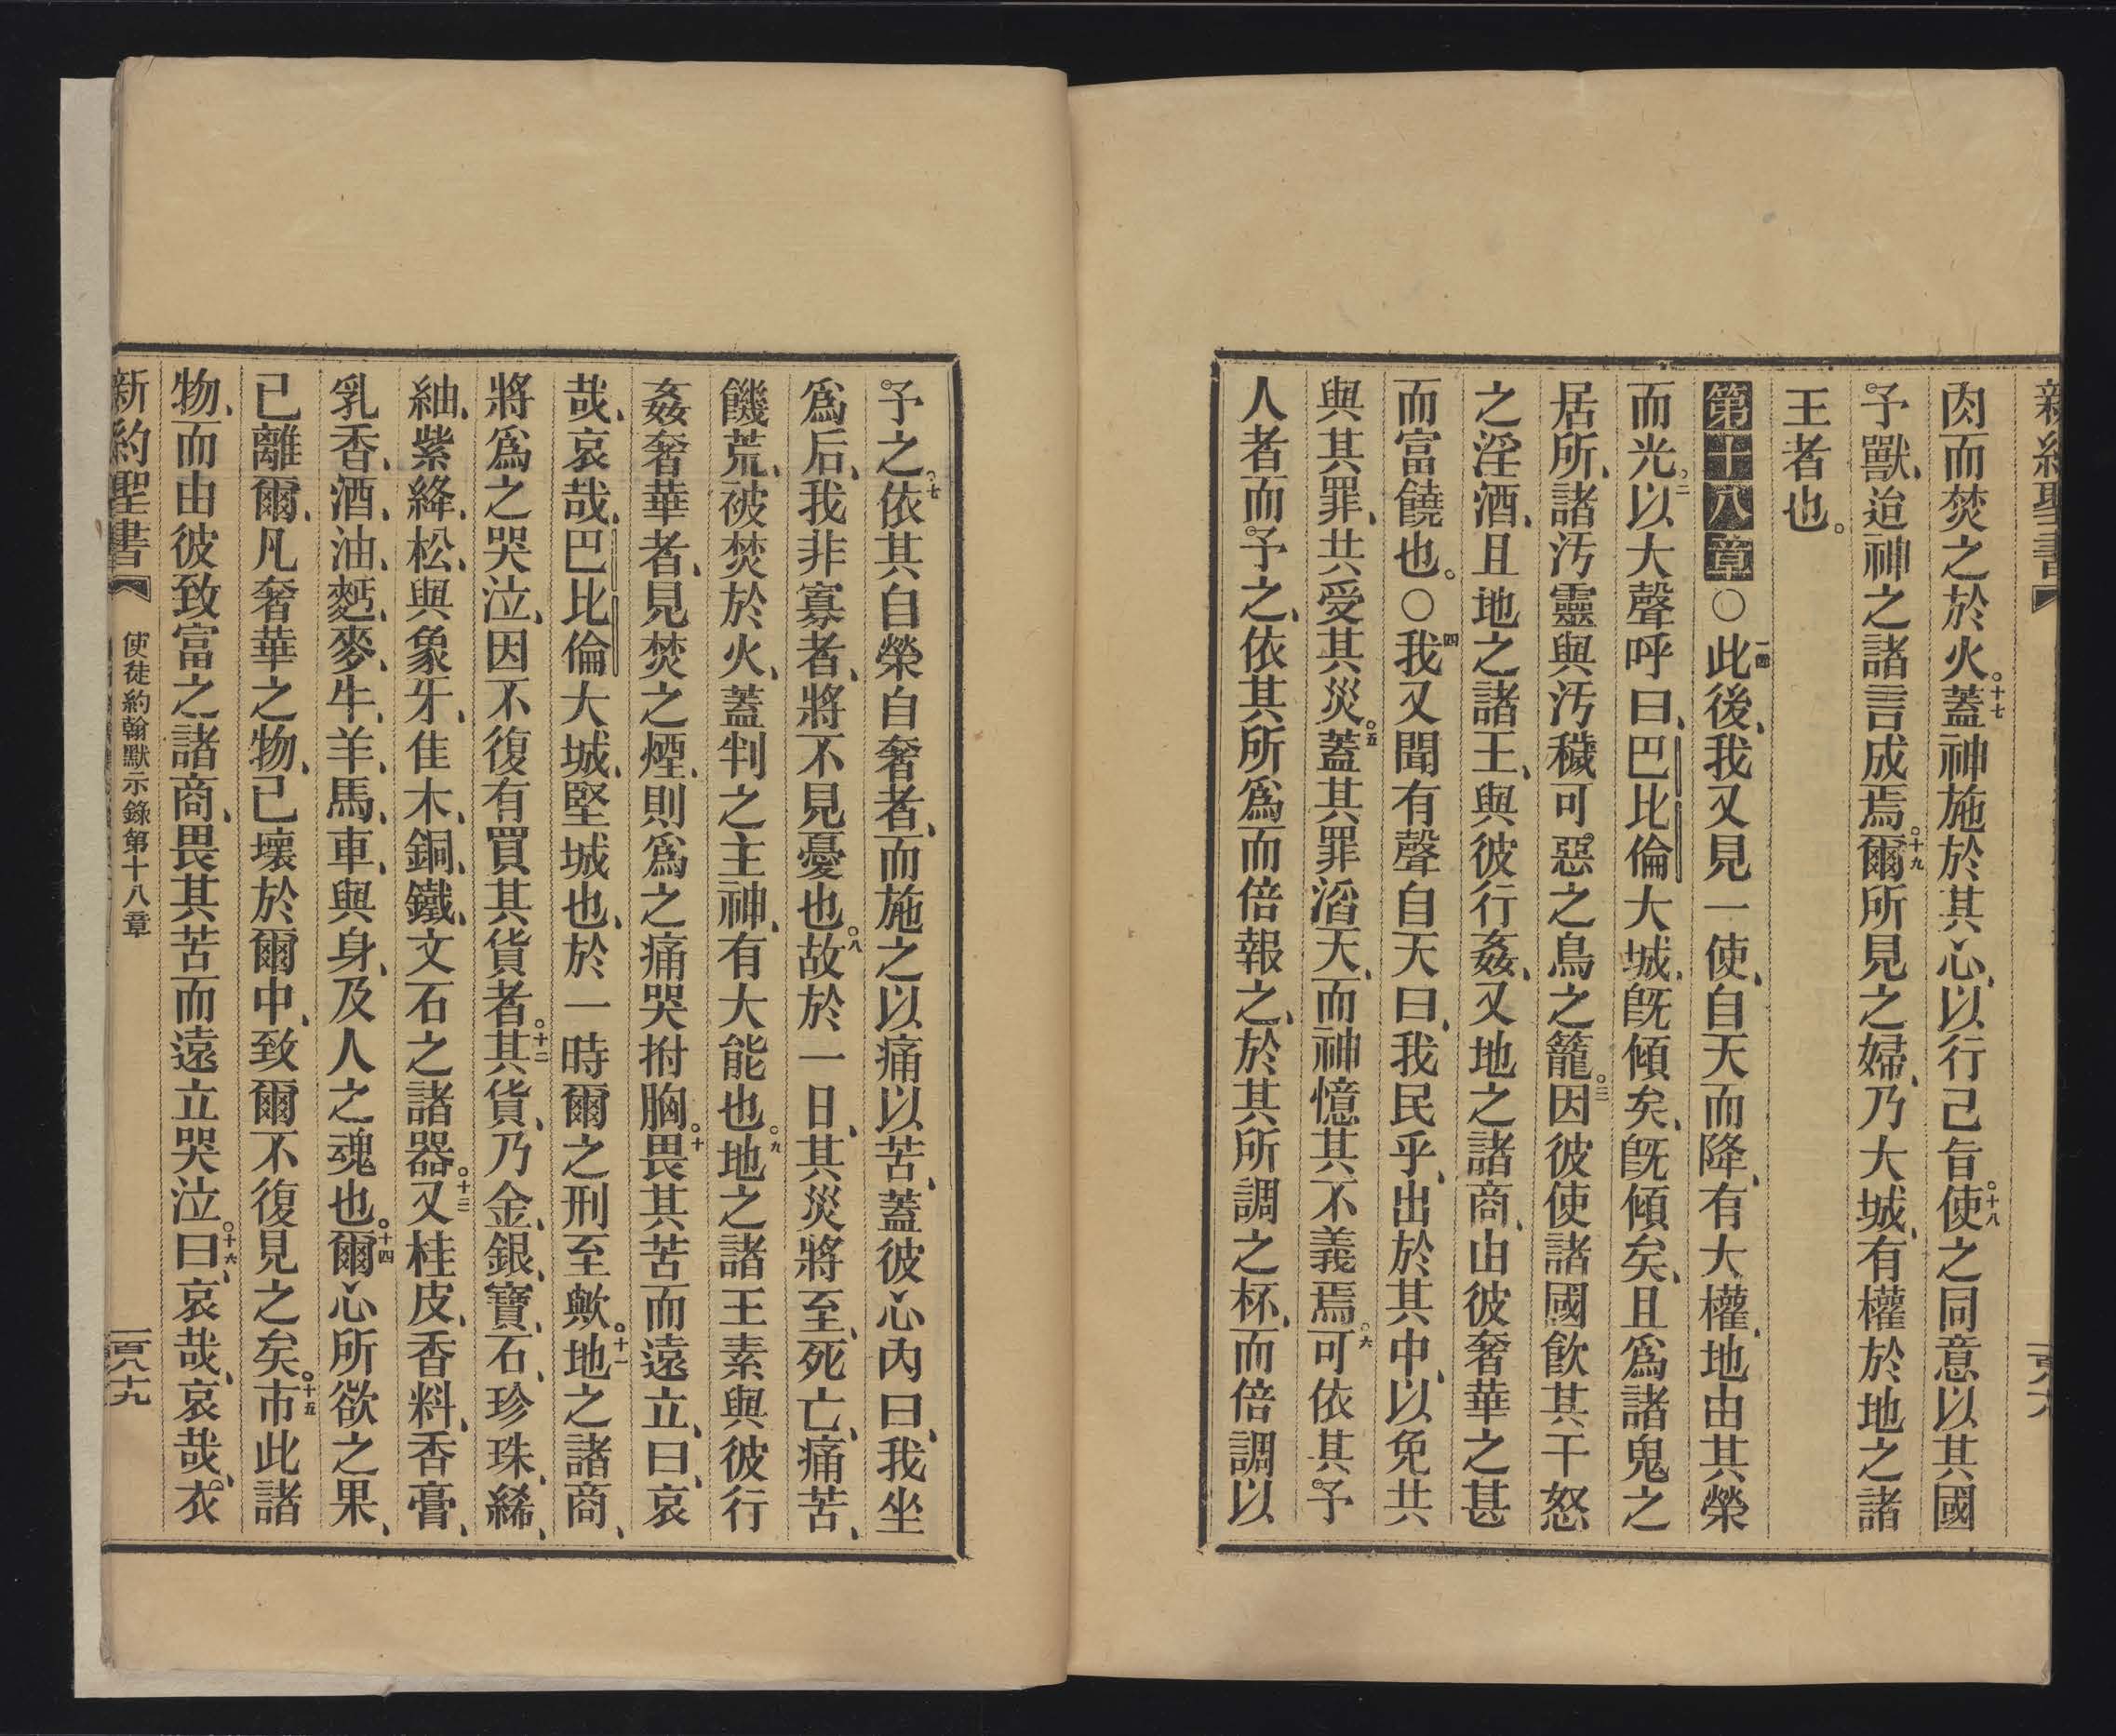 新約聖書
肉而焚之於火。十七蓋神施於其心、以行己旨。十八使之同意以其國
予獸、迨神之諸言成焉。十九爾所見之婦、乃大城、有權於地之諸
王者也。
第十八章〇一節此後、我又見一使、自天而降、有大權、地由其榮
而光。二以大聲呼曰、巴比倫大城、旣傾矣、旣傾矣、且爲諸鬼之
居所、諸汚靈與汚穢可惡之鳥之籠。三因彼使諸國飲其干怒
之淫酒、且地之諸王、與彼行姦、又地之諸商、由彼奢華之甚
而富饒也。〇四我又聞有聲自天曰、我民乎、出於其中、以免共
與其罪、共受其災。五蓋其罪滔天、而神憶其不義焉。六可依其予
人者而予之、依其所爲而倍報之、於其所調之杯、而倍調以
予之。七依其自榮自奢者、而施之以痛以苦、蓋彼心內曰、我坐
爲后、我非寡者、將不見憂也。八故於一日、其災將至、死亡、痛苦、
饑荒、被焚於火、蓋判之主神、有大能也。九地之諸王素與彼行
姦奢華者、見焚之煙、則爲之痛哭拊胸。十畏其苦而遠立、曰、哀
哉、哀哉、巴比倫大城、堅城也、於一時爾之刑至歟。十一地之諸商、
將爲之哭泣、因不復有買其貨者。十二其貨、乃金、銀、寶、石、珍珠、絺、
紬、紫、絳、松、與象牙、佳木、銅、鐵、文石之諸器。十三又桂皮、香料、香膏、
乳香、酒、油、麪、麥、牛、羊、馬、車、與身、及人之魂也。十四爾心所欲之果、
已離爾、凡奢華之物、已壞於爾中、致爾不復見之矣。十五市此諸
物、而由彼致富之諸商、畏其苦而遠立哭泣。十六曰、哀哉、哀哉、衣
新約聖書 使徒約翰默示錄第十八章 一百八十九